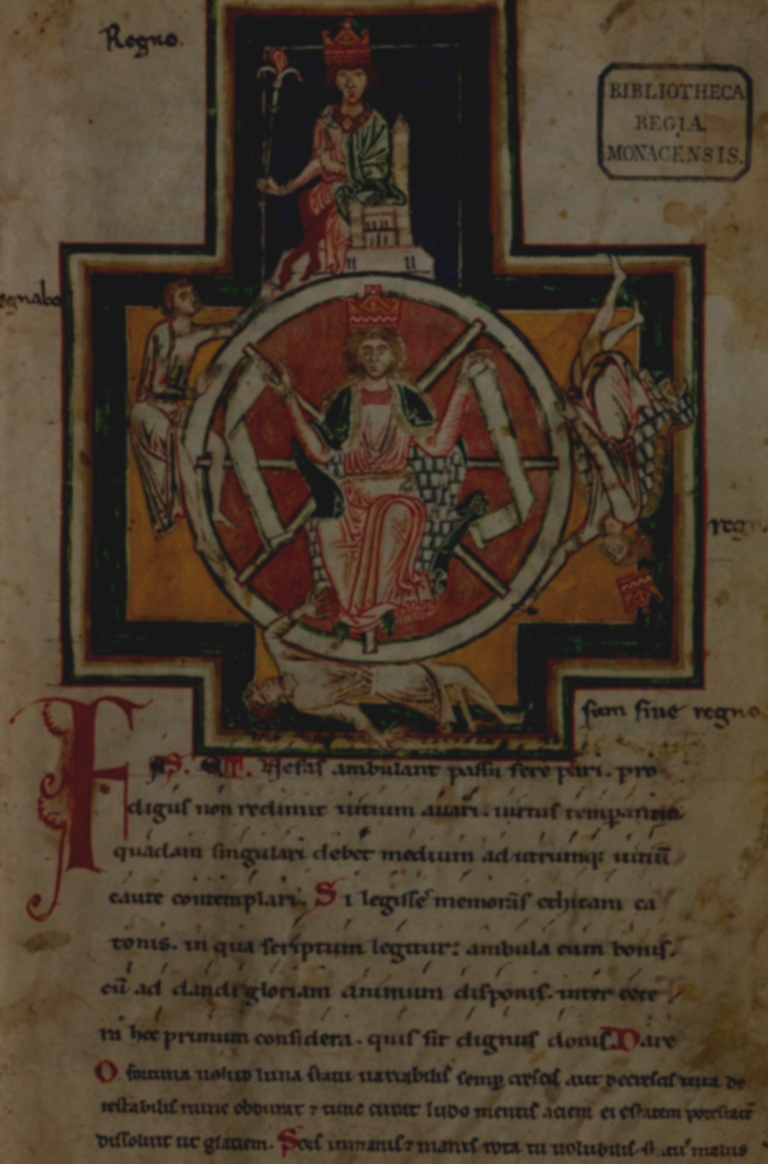 Regno
BIBLIOTHECA
REGIA
MONACENSIS.
egnabo
regn
sum sine regno
FAS. ET. Nefas ambulant passu fere pari. pro
digus non redimit uitium auari. uirtus temperantia
quadam singulari debet medium ad utrumq; uitiū
caute contemplari. Si legisse memoras ethicam ca
tonis. in qua scriptum legitur: ambula cum bonis.
cū ad dandi gloriam animum disponis. inter cete
ra hoc primum considera. quis sit dignus donis. Dare
O fortuna uelud luna statu uariabilis semp crescis aut decrescis uita de
testabilis nunc obdurat ⁊ tunc curat ludo mentis aciem egestatem potestatē
dissoluit ut glaciem. Sors immanis ⁊ inanis rota tu uolubilis statꝰ malus